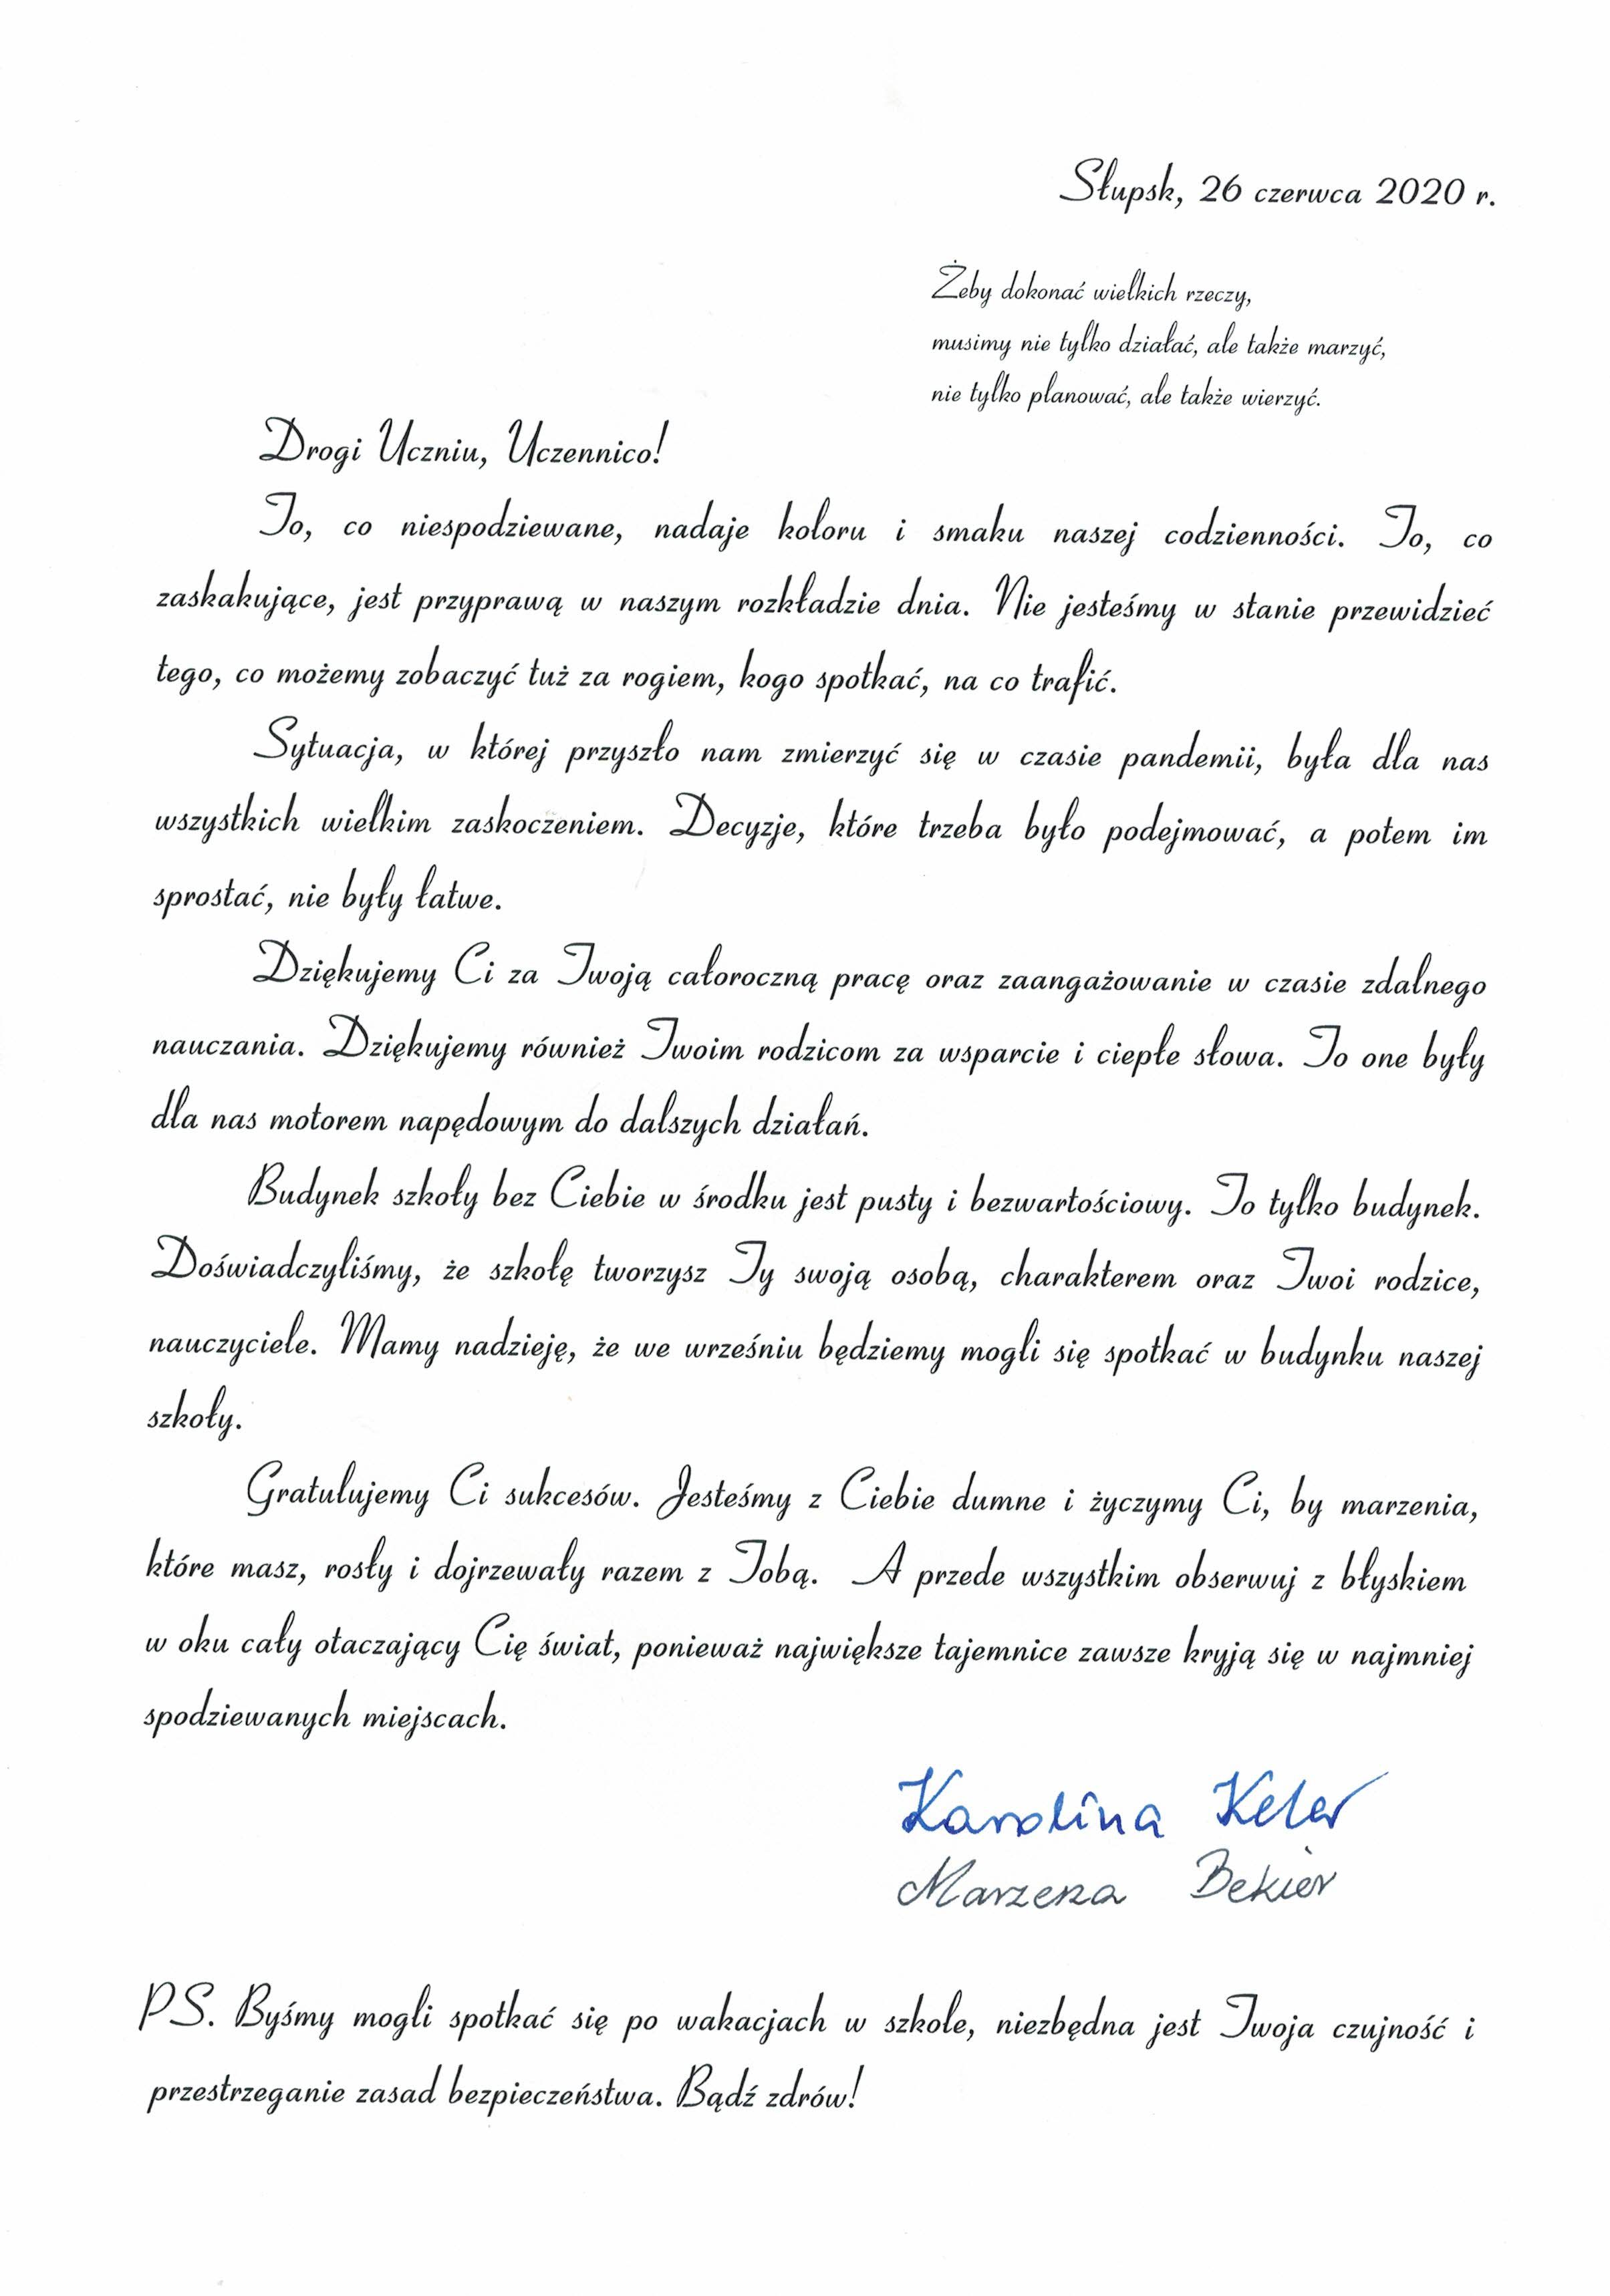 Słupsk, 26 czerwca 2020 r.
Żeby dokonać wielkich rzeczy,
musimy nie tylko działać, ale także marzyć,
nie tylko planować, ale także wierzyć.
Drogi Uczniu, Uczennico!
To, co niespodziewane, nadaje koloru i smaku naszej codzienności. To, co
zaskakujące, jest przyprawą w naszym rozkładzie dnia. Nie jesteśmy w stanie przewidzieć
tego, co możemy zobaczyć tuż za rogiem, kogo spotkać, na co trafić.
Sytuacja, w której przyszło nam zmierzyć się w czasie pandemii, była dla nas
wszystkich wielkim zaskoczeniem. Decyzje, które trzeba było podejmować, a potem im
sprostać, nie były łatwe.
Dziękujemy Ci za Twoją całoroczną pracę oraz zaangażowanie w czasie zdalnego
nauczania. Dziękujemy również Twoim rodzicom za wsparcie i ciepłe słowa. To one były
dla nas motorem napędowym do dalszych działań.
Budynek szkoły bez Ciebie w środku jest pusty i bezwartościowy. To tylko budynek.
Doświadczyliśmy, że szkołę tworzysz Ty swoją osobą, charakterem oraz Twoi rodzice,
nauczyciele. Mamy nadzieję, że we wrześniu będziemy mogli się spotkać w budynku naszej
szkoły.
Gratulujemy Ci sukcesów. Jesteśmy z Ciebie dumne i życzymy Ci, by marzenia,
które masz, rosły i dojrzewały razem z Tobą. A przede wszystkim obserwuj z błyskiem
w oku cały otaczający Cię świat, ponieważ największe tajemnice zawsze kryją się w najmniej
spodziewanych miejscach.
Karolina Keler
Marzena Bekier
PS. Byśmy mogli spotkać się po wakacjach w szkole, niezbędna jest Twoja czujność i
przestrzeganie zasad bezpieczeństwa. Bądź zdrów!